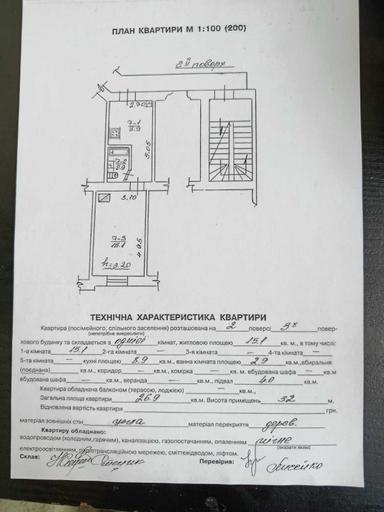 ПЛАН КВАРТИРИ М 1:100 (200)
2й поверх
2.70
7-1
8.9
3.05
7-2
2.9
3.70
7-3
15.1
4.05
h=3.20
ТЕХНІЧНА ХАРАКТЕРИСТИКА КВАРТИРИ
Квартира (посімейного, спільного заселення) розташована на 2 поверсі 3х повер-
(непотрібне викреслити)
хового будинку та складається з однієї кімнат, житловою площею 15.1 кв. м., в тому числі:
1-а кімната 15.1 2-га кімната — 3-я кімната — 4-та кімната —
5-та кімната — кухні площею 8.9 кв.м., ванна кімната площею 2.9 кв.м., вбиральня
(поєднана) кв.м., коридор — кв.м., комірка — кв. м. вбудована шафа — кв.м
вбудована шафа — кв.м., веранда — кв.м., підвал 4.0 кв.м.
Квартира обладнана балконом (терасою, лоджією) — кв.м.,
Загальна площа квартири 26.9 кв.м. Висота приміщень 3.2 м.
Відновлена вартість квартири грн.
матеріал зовнішніх стін цегла матеріал перекриття дерев.
Квартиру обладнано:
водопроводом (холодним, гарячим), каналізацією, газопостачанням, опаленням пічне
(вказати яким)
електроосвітленням, радіотрансляційною мережею, сміттєвідводом, ліфтом.
Склав: Перевірив: